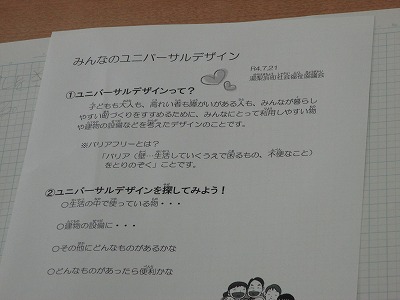 みんなのユニバーサルデザイン
R4.7.21
社会福祉協議会
①ユニバーサルデザインって？
子どもも大人も、高れい者も障がいがある人も、みんなが暮らし
やすい町づくりをすすめるために、みんなにとって利用しやすい物
や建物の設備などを考えたデザインのことです。
※バリアフリーとは？
「バリア（壁…生活していくうえで困るもの、不便なこと）
をとりのぞく」ことです。
②ユニバーサルデザインを探してみよう！
○生活の中で使っている物・・・
○建物の設備に・・・
○その他にどんなものがあるかな
○どんなものがあったら便利かな